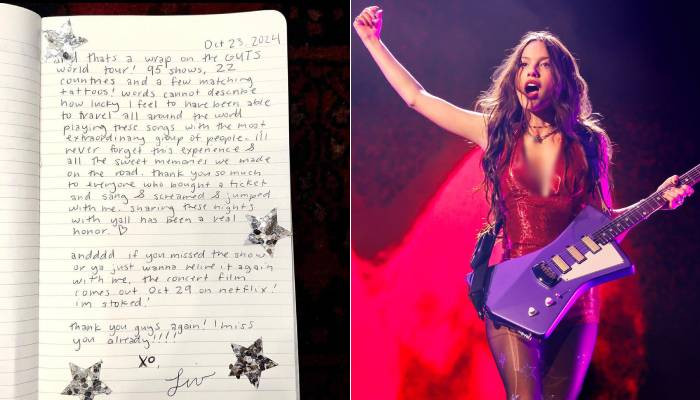 Oct 23, 2024
and thats a wrap on the GUTS
world tour! 95 shows, 22
countries and a few matching
tattoos! words cannot describe
how lucky I feel to have been able
to travel all around the world
playing these songs with the most
extraordinary group of people. ill
never forget this experience &
all the sweet memories we made
on the road. thank you so much
to everyone who bought a ticket
and sang & screamed & jumped
with me. sharing these nights
with yall has been a real
honor. ♡
andddd if you missed the show
or ya just wanna relive it again
with me, the concert film
comes out Oct 29 on netflix!
im stoked!
thank you guys again! I miss
you already!!!!
xo,
Liv